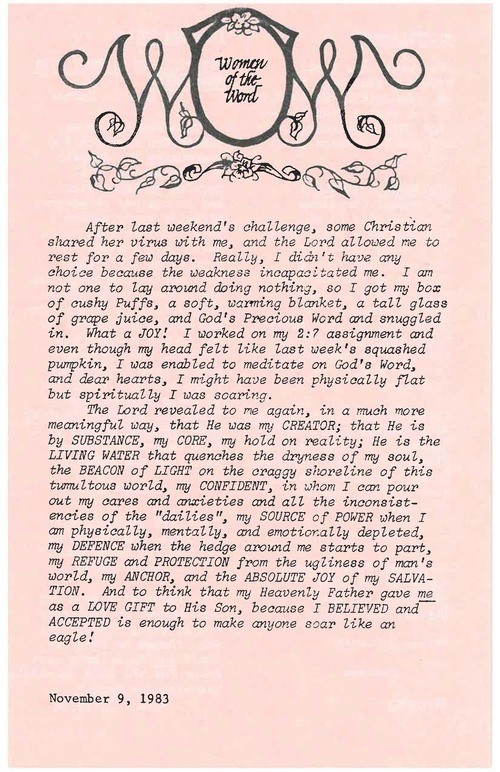 WOW
Women
of the
Word
After last weekend's challenge, some Christian
shared her virus with me, and the Lord allowed me to
rest for a few days. Really, I didn't have any
choice because the weakness incapacitated me. I am
not one to lay around doing nothing, so I got my box
of cushy Puffs, a soft, warming blanket, a tall glass
of grape juice, and God's Precious Word and snuggled
in. What a JOY! I worked on my 2:7 assignment and
even though my head felt like last week's squashed
pumpkin, I was enabled to meditate on God's Word,
and dear hearts, I might have been physically flat
but spiritually I was soaring.
The Lord revealed to me again, in a much more
meaningful way, that He was my CREATOR; that He is
by SUBSTANCE, my CORE, my hold on reality; He is the
LIVING WATER that quenches the dryness of my soul,
the BEACON of LIGHT on the craggy shoreline of this
tumultous world, my CONFIDENT, in whom I can pour
out my cares and anxieties and all the inconsist-
encies of the "dailies", my SOURCE of POWER when I
am physically, mentally, and emotionally depleted,
my DEFENCE when the hedge around me starts to part,
my REFUGE and PROTECTION from the ugliness of man's
world, my ANCHOR, and the ABSOLUTE JOY of my SALVA-
TION. And to think that my Heavenly Father gave me
as a LOVE GIFT to His Son, because I BELIEVED and
ACCEPTED is enough to make anyone soar like an
eagle!
November 9, 1983